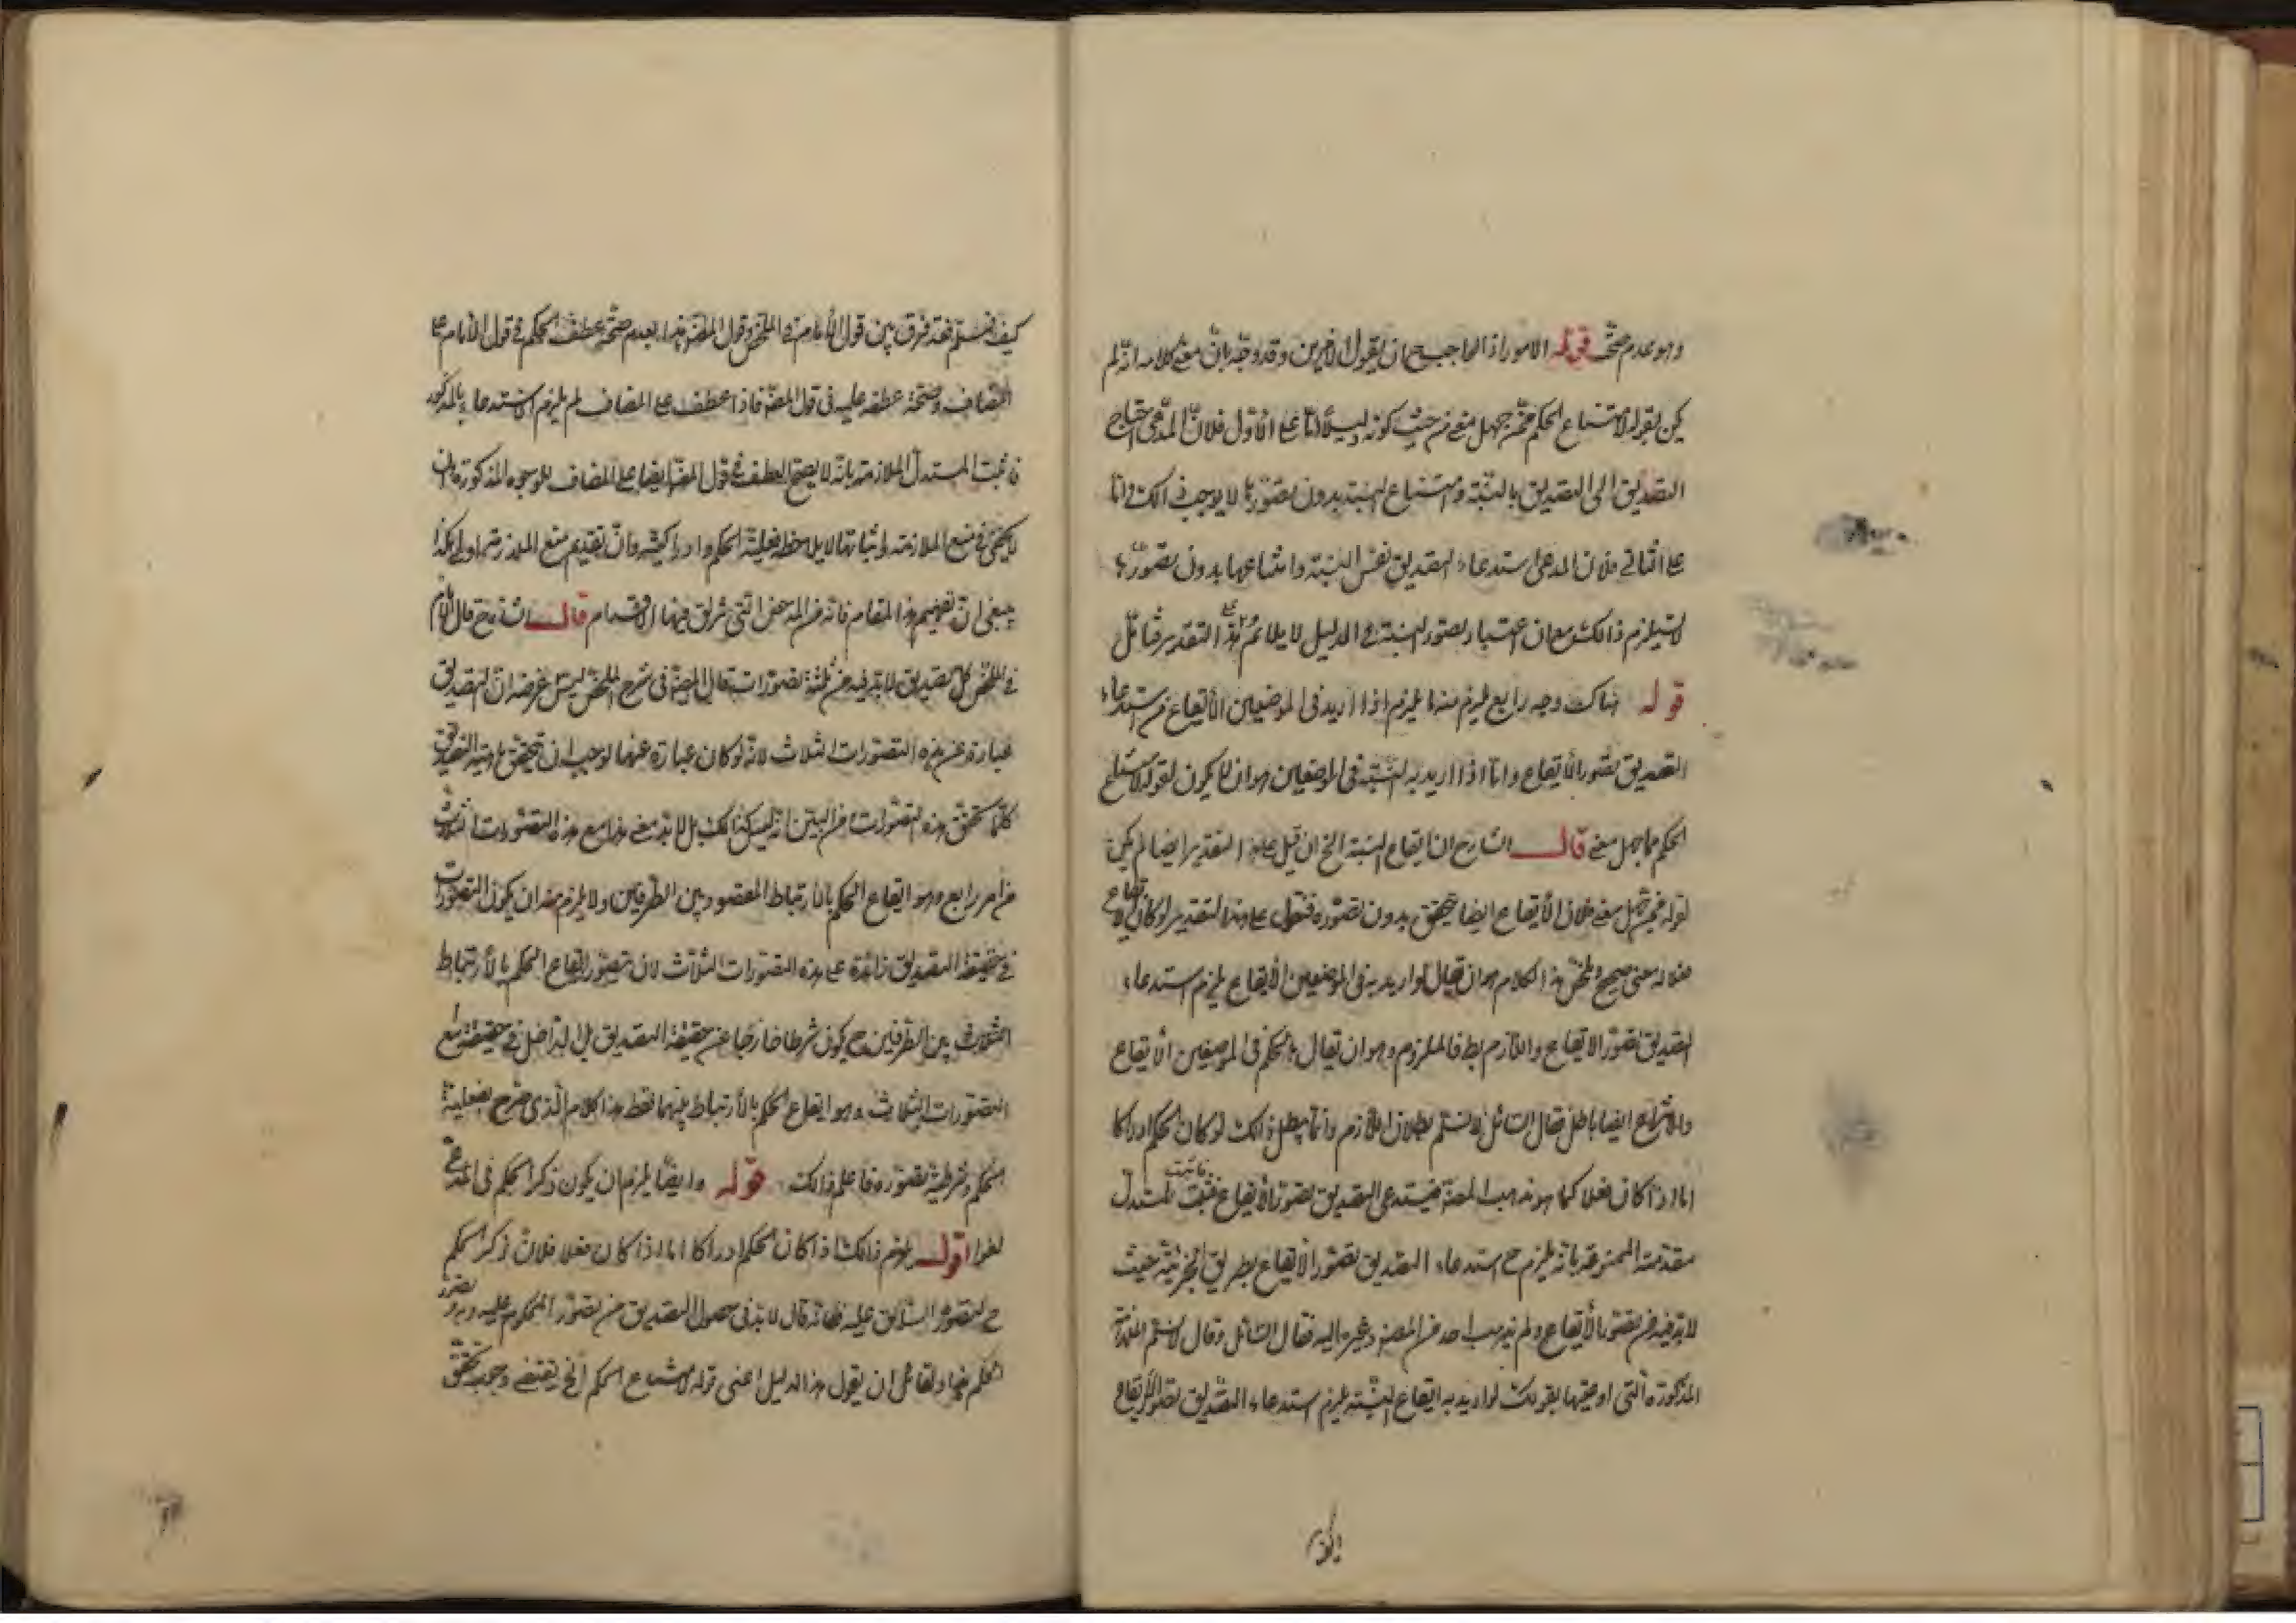 وهو عدم صحة قوله الامور اذ الواجب ح ان يقول الاخيرين وقد وجه بان معنى كلامه انه لم
يكن لقوله لامتناع الحكم ممن جهل معنى من حيث كونه دليلا اما على الاول فلان المدعى احتياج
التصديق الى التصديق بالنسبة وامتناع النسبة بدون تصورها لا يوجب ذالك واما
على الثانى فلان المدعى استدعاء التصديق نفس النسبة وامتناعها بدون تصورها
لا يستلزم ذالك مع ان اعتبار تصور النسبة فى الدليل لا يلائم هذا التقدير فتأمل
قوله هناك وجه رابع يلزم منه ما يلزم اذا اريد فى الموضعين الايقاع من استدعاء
التصديق تصور الايقاع واما اذا اريد به النسبة فى الموضعين هو ان لا يكون لقوله لامتناع
الحكم ممن جهل معنى قال الشارح ان ايقاع النسبة الخ ان قيل على هذا التقدير ايضا لم يكن
لقوله ممن جهل معنى فلان الايقاع ايضا يتحقق بدون تصوره فنقول على هذا التقدير لو كان
معناه معنى صحيح وملخص هذا الكلام هو ان يقال لو اريد به فى الموضعين الايقاع يلزم استدعاء
التصديق تصور الايقاع واللازم بط فالملزوم وهو ان يقال الحكم فى الموضعين الايقاع
والانتزاع ايضا باطل فقال السائل لا نسلم بطلان اللازم وانما يبطل ذالك لو كان الحكم ادراكا
اما اذا كان فعلا كما هو مذهب المصنف فيستدعى التصديق تصور الايقاع فيثبت المستدل
مقدمته الممنوعة بانه يلزم ح استدعاء التصديق تصور الايقاع بطريق الجزئية حيث
لا بد فيه من تصور الايقاع ولم يذهب احد من المصنف وغيره اليه فقال السائل وقال لا نسلم الملازمة
المذكورة التى اوضحتها بقولك لو اريد به ايقاع النسبة يلزم استدعاء التصديق تصور الايقاع
كيف
كيف نسلم فقد فرق بين قول الامام فى الملخص وقول المصنف هذا بعدم صحة عطف الحكم فى قول الامام على
المضاف وصحة عطفه عليه فى قول المصنف فاذا عطف على المضاف لم يلزم الاستدعاء بالمذكور
فاثبت المستدل الملازمة بانه لا يصح العطف فى قول المصنف ايضا على المضاف للوجوه المذكورة وان
لا يخفى فى منع الملازمة واثباتها لا يلاحظ فعلية الحكم وادراكيته وان تقديم منع الملازمة اولى هكذا
ينبغى ان تفهيم هذا المقام فانه من المداحض التى تزلق فيها الاقدام قال الشارح قال الامام
فى الملخص كل تصديق لا بد فيه من ثلثة تصورات قال المصنف فى شرح الملخص ليس غرضه ان التصديق
عبارة عن هذه التصورات الثلاث لانه لو كان عبارة عنها لوجب ان يتحقق ماهية التصديق
كلما تحقق هذه التصورات من البين انه ليس كذالك بل لا بد معنى هذا مع هذه التصورات الثلاث
من امر رابع وهو ايقاع الحكم بالارتباط المقصود بين الطرفين ولا يلزم منه ان يكون التصورات
فى حقيقة التصديق زائدة على هذه التصورات الثلاث لان تصور ايقاع الحكم بالارتباط
الثلاث بين الطرفين ح يكون شرطا خارجا عن حقيقة التصديق بل الداخل فى حقيقته مع
التصورات الثلاث وهو ايقاع الحكم بالارتباط بينهما فقط هذا كلام الذى صرح بفعلية
الحكم وشرطية تصوره فاعلم ذالك قوله وايضا يلزم ان يكون ذكر الحكم فى المدعى
لغوا اقول يلزم ذالك اذا كان الحكم ادراكا اما اذا كان فعلا فلان ذكر الحكم
ح لتصوره السابق عليه فانه قال لا بد فى حصول التصديق من تصور المحكوم عليه وبه وتصور
الحكم فهما ولقائل ان يقول هذا الدليل اعنى قوله لامتناع الحكم الخ يقتضى وجوب تحقق